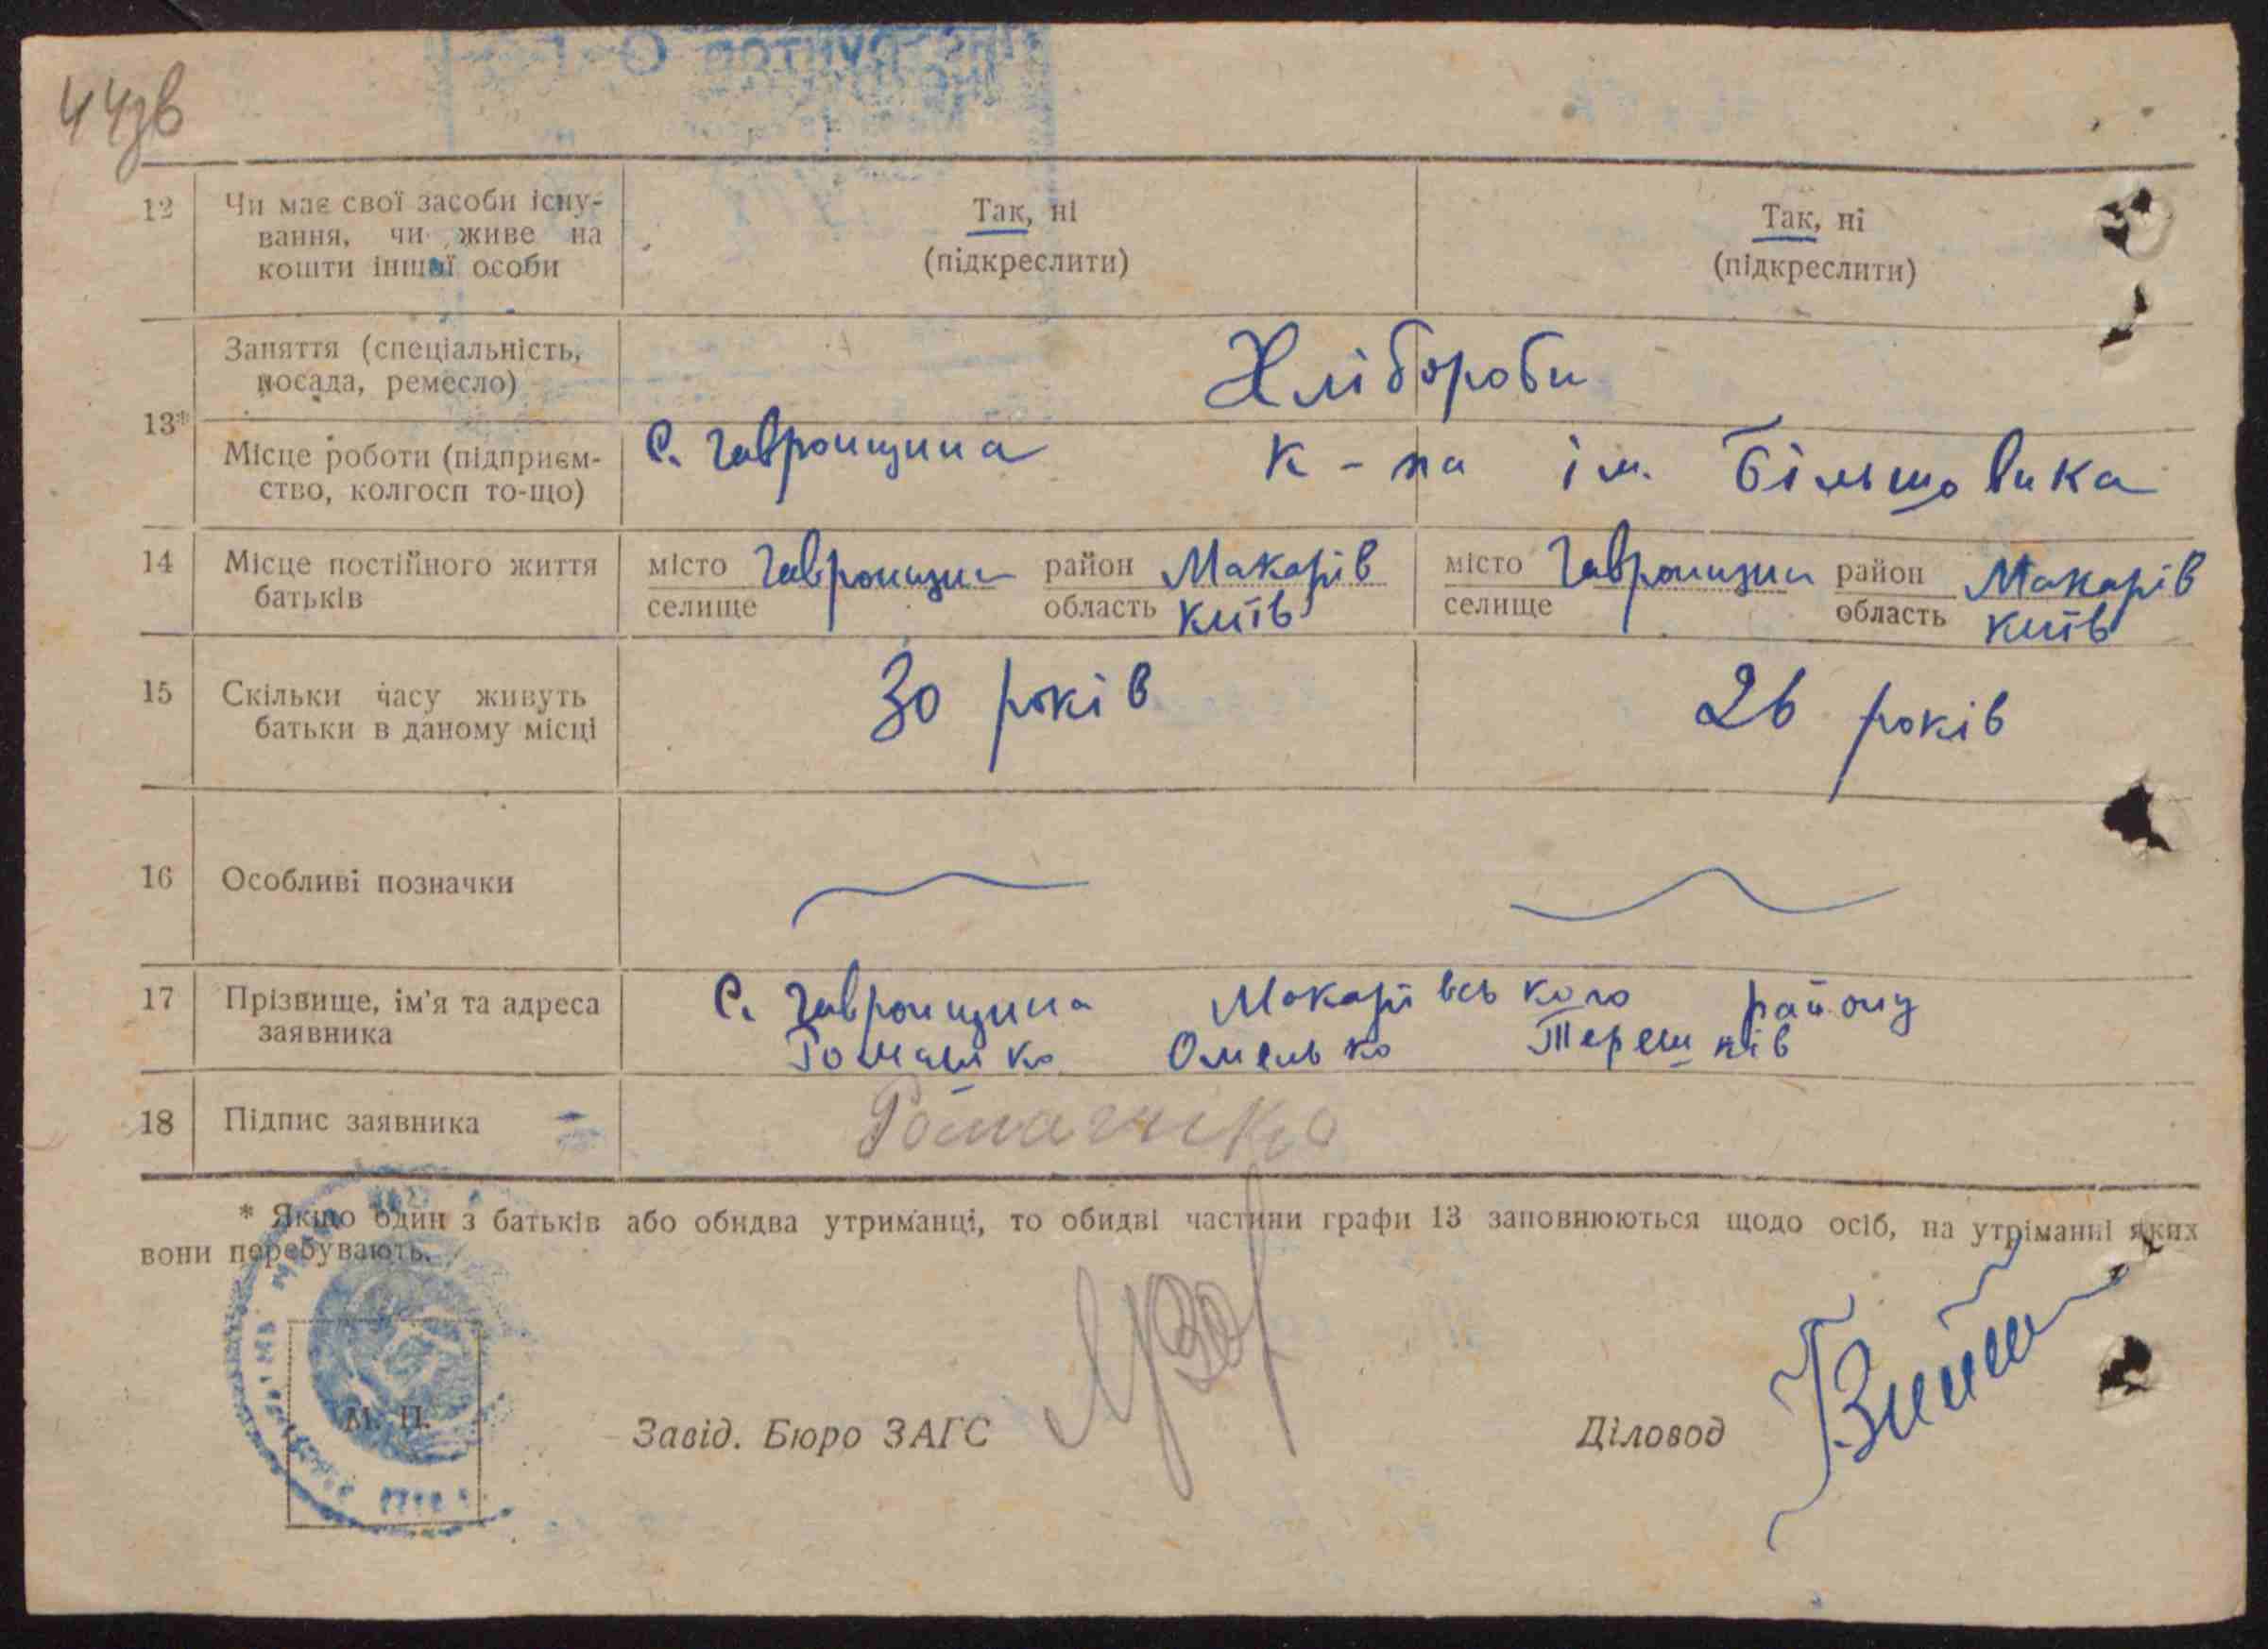 44зв
12 Чи має свої засоби існу- Так, ні Так, ні
вання, чи живе на
кошти іншої особи (підкреслити) (підкреслити)
Заняття (спеціальність, Хлібороби
посада, ремесло)
13*
Місце роботи (підприєм- С. Гавронщина к-па ім. Більшовика
ство, колгосп то-що)
14 Місце постійного життя місто Гавронщина район Макарів місто Гавронщина район Макарів
батьків селище область Київ селище область Київ
15 Скільки часу живуть 30 років 26 років
батьки в даному місці
16 Особливі позначки
17 Прізвище, ім'я та адреса С. Гавронщина Макарівського району
заявника Романко Омелько Терешків
18 Підпис заявника
* Якщо один з батьків або обидва утриманці, то обидві частини графи 13 заповнюються щодо осіб, на утріманні яких
вони перебувають.
М. П.
Завід. Бюро ЗАГС Діловод